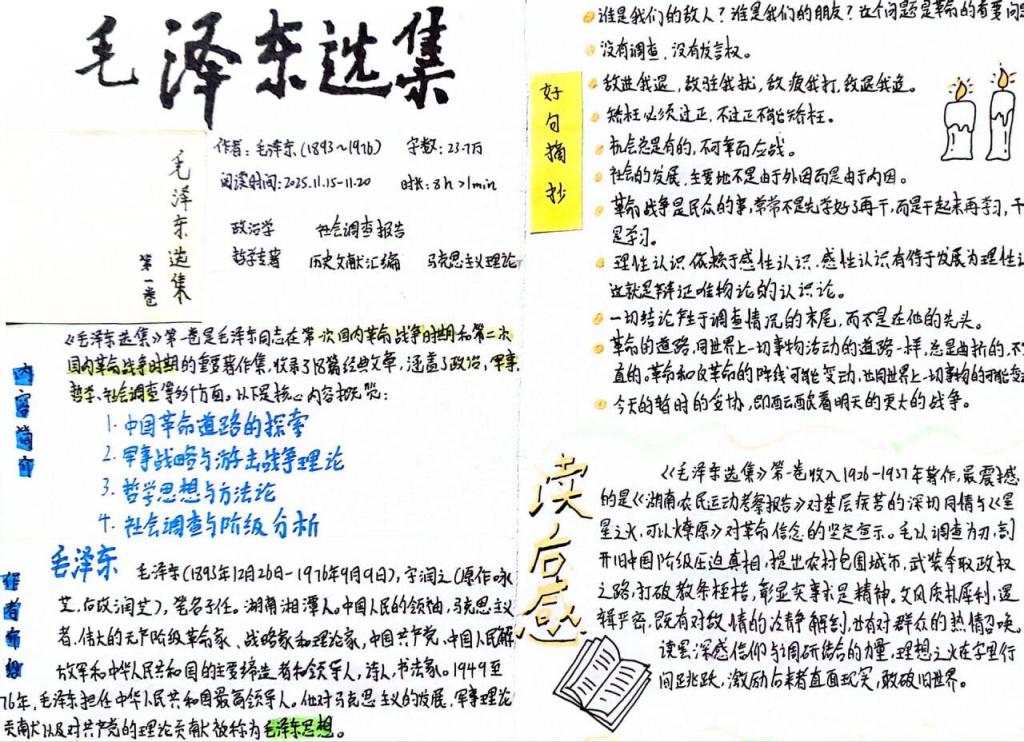 毛泽东选集
毛泽东选集
第一卷
作者：毛泽东(1893~1976) 字数：23.7万
阅读时间：2025.11.15-11.20 时长：8h>1min
政治学 社会调查报告
哲学专著 历史文献汇编 马克思主义理论
内容简介
《毛泽东选集》第一卷是毛泽东同志在第一次国内革命战争时期和第二次
国内革命战争时期的重要著作集，收录了18篇经典文章，涵盖了政治，军事
哲学、社会调查等多个方面。以下是核心内容概览：
1. 中国革命道路的探索
2. 军事战略与游击战争理论
3. 哲学思想与方法论
4. 社会调查与阶级分析
作者介绍
毛泽东
毛泽东(1893年12月26日-1976年9月9日)，字润之(原作咏
芝，后改润芝)，笔名子任。湖南湘潭人。中国人民的领袖，马克思主义
者，伟大的无产阶级革命家、战略家和理论家，中国共产党、中国人民解
放军和中华人民共和国的主要缔造者和领导人，诗人，书法家。1949至
76年，毛泽东担任中华人民共和国最高领导人。他对马克思主义的发展、军事理论
贡献以及对共产党的理论贡献被称为毛泽东思想。
好句摘抄
谁是我们的敌人？谁是我们的朋友？这个问题是革命的首要问
没有调查，没有发言权。
敌进我退，敌驻我扰，敌疲我打，敌退我追。
矫枉必须过正，不过正不能矫枉。
机会总是有的，不可率而应战。
社会的发展，主要地不是由于外因而是由于内因。
革命战争是民众的事，常常不是先学好了再干，而是干起来再学习，干
是学习。
理性认识依赖于感性认识，感性认识有待于发展为理性认
这就是辩证唯物论的认识论。
一切结论产生于调查情况的末尾，而不是在他的先头。
革命的道路，同世界上一切事物活动的道路一样，总是曲折的，不
直的。革命和反革命的阵线可能变动，也同世界上一切事物的可能变
今天的暂时的妥协，即酝酿着明天的更大的战争。
读后感
《毛泽东选集》第一卷收入1926-1937年著作，最震撼
的是《湖南农民运动考察报告》对基层疾苦的深切同情与《星
星之火，可以燎原》对革命信念的坚定宣示。毛以调查为刃，剖
开旧中国阶级压迫真相，提出农村包围城市，武装夺取政权
之路，打破教条桎梏，彰显实事求是精神。文风质朴犀利，逻
辑严密，既有对敌情的冷静解剖，也有对群众的热情召唤。
读罢深感信仰与调研结合的力量，理想之火在字里行
间跃动，激励后来者直面现实，敢破旧世界。